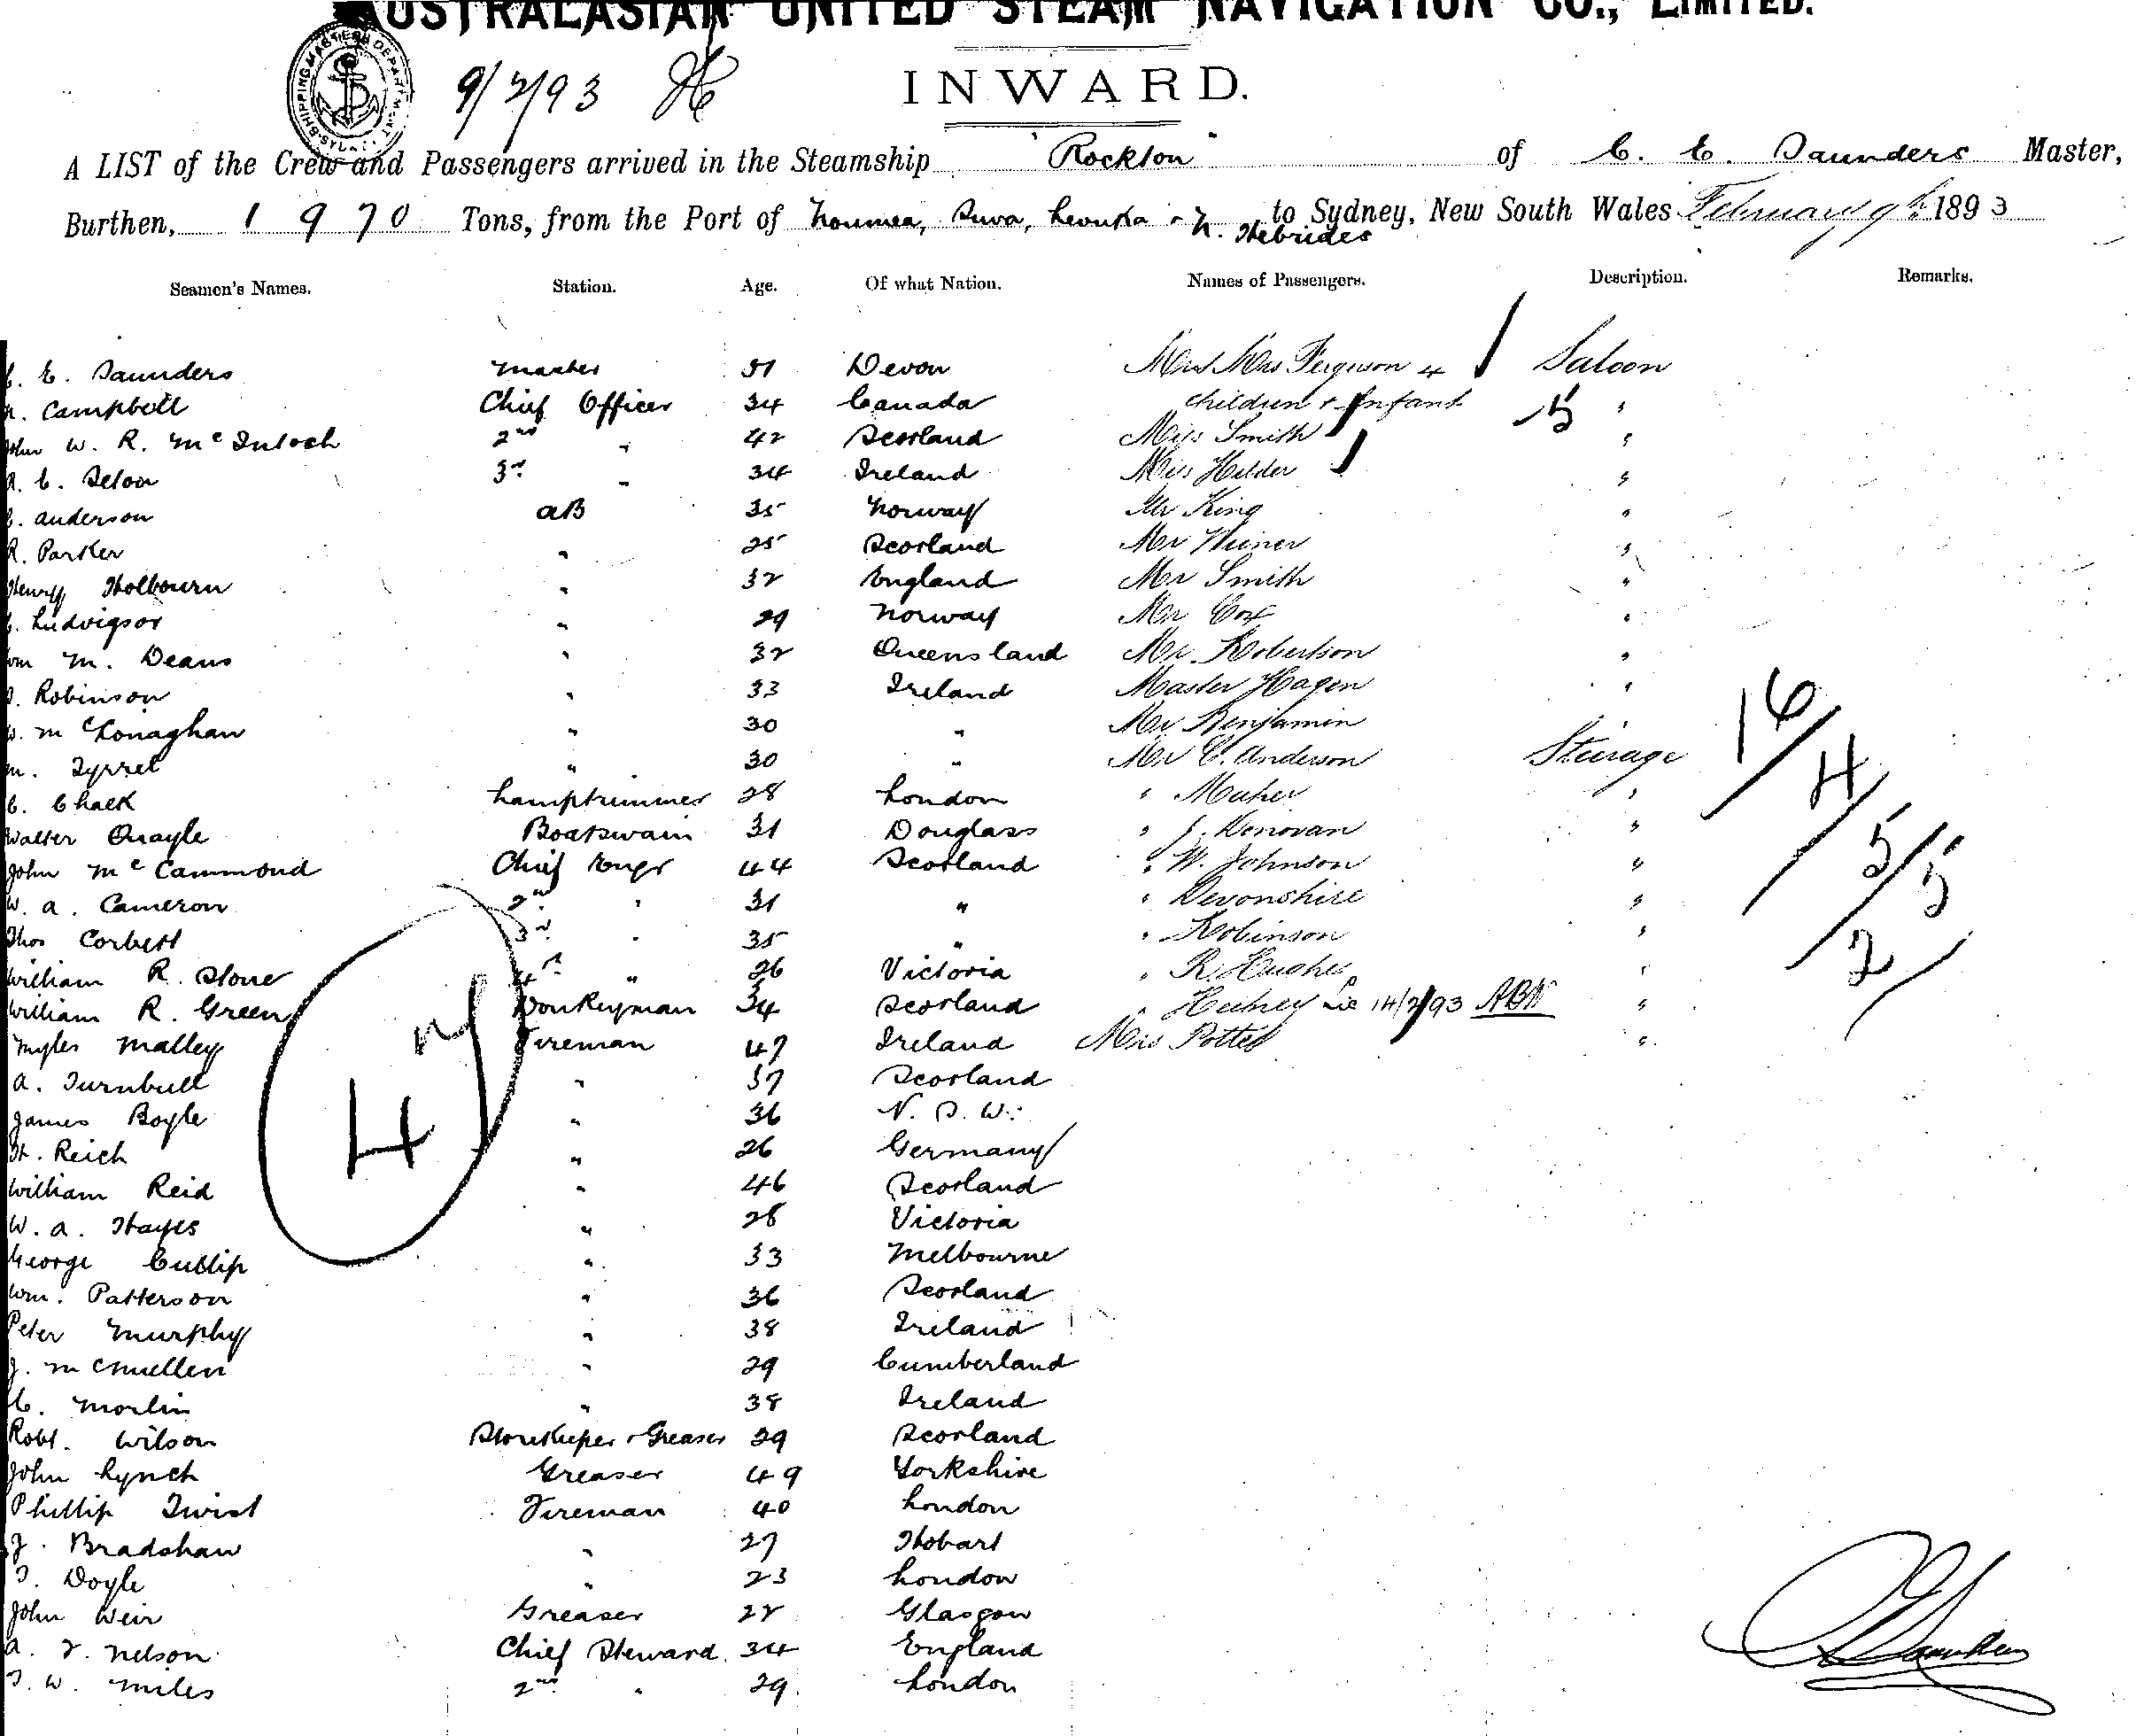 AUSTRALASIAN UNITED STEAM NAVIGATION CO., LIMITED.
9/2/93
INWARD.
A LIST of the Crew and Passengers arrived in the Steamship "Rockton" of C. E. Saunders Master,
Burthen, 1970 Tons, from the Port of Noumea, Suva, Levuka & N. Hebrides to Sydney, New South Wales February 9th 1893
Seamen's Names. Station. Age. Of what Nation. Names of Passengers. Description. Remarks.
C. E. Saunders Master 51 Devon Mr and Mrs Ferguson 4 Saloon
Campbell Chief Officer 34 Canada children & Infant 15 "
John W. R. McIntosh 2nd " 42 Scotland Miss Smith "
A. C. Seton 3rd " 34 Ireland Miss Hilder "
C. Anderson AB 35 Norway Mr King "
R. Parker " 25 Scotland Mr "
Henry Holbourn " 32 England Mr Smith "
Ludvigson " 29 Norway Mr Cox "
Wm M. Deans " 32 Queensland Mr Robertson "
Robinson " 33 Ireland Master Hagen "
McConaghan " 30 " Mr Benjamin " 16
M. Tyrrel " 30 " Mr C. Anderson Steerage
C. Chalk Lamptrimmer 28 London " Maher " 4
Walter Quayle Boatswain 31 Douglass " J. Donovan "
John McCammond Chief Engr 44 Scotland " W. Johnson " 5/5
W. A. Cameron 2nd " 31 " " Devonshire "
Thos Corbett 3rd " 35 " " Robinson " 2
William R. Stone 4th " 26 Victoria " R. Hughes "
William R. Green Donkeyman 34 Scotland " 14/2/93 ABN "
Myles Malley Fireman 47 Ireland Miss Potter "
A. Turnbull " 37 Scotland
James Boyle " 36 N. S. W.
H. Reich " 26 Germany
William Reid " 46 Scotland
W. A. Hayes " 28 Victoria
George Cutlip " 33 Melbourne
Wm. Patterson " 36 Scotland
Peter Murphy " 38 Ireland
J. McMullen " 29 Cumberland
C. Morlin " 38 Ireland
Robt. Wilson Storekeeper & Greaser 29 Scotland
John Lynch Greaser 49 Yorkshire
Phillip Twist Fireman 40 London
J. Bradshaw " 27 Hobart
T. Doyle " 23 London
John Weir Greaser 22 Glasgow
A. J. Nelson Chief Steward 34 England
T. W. Miles 2nd " 29 London
CESaunders